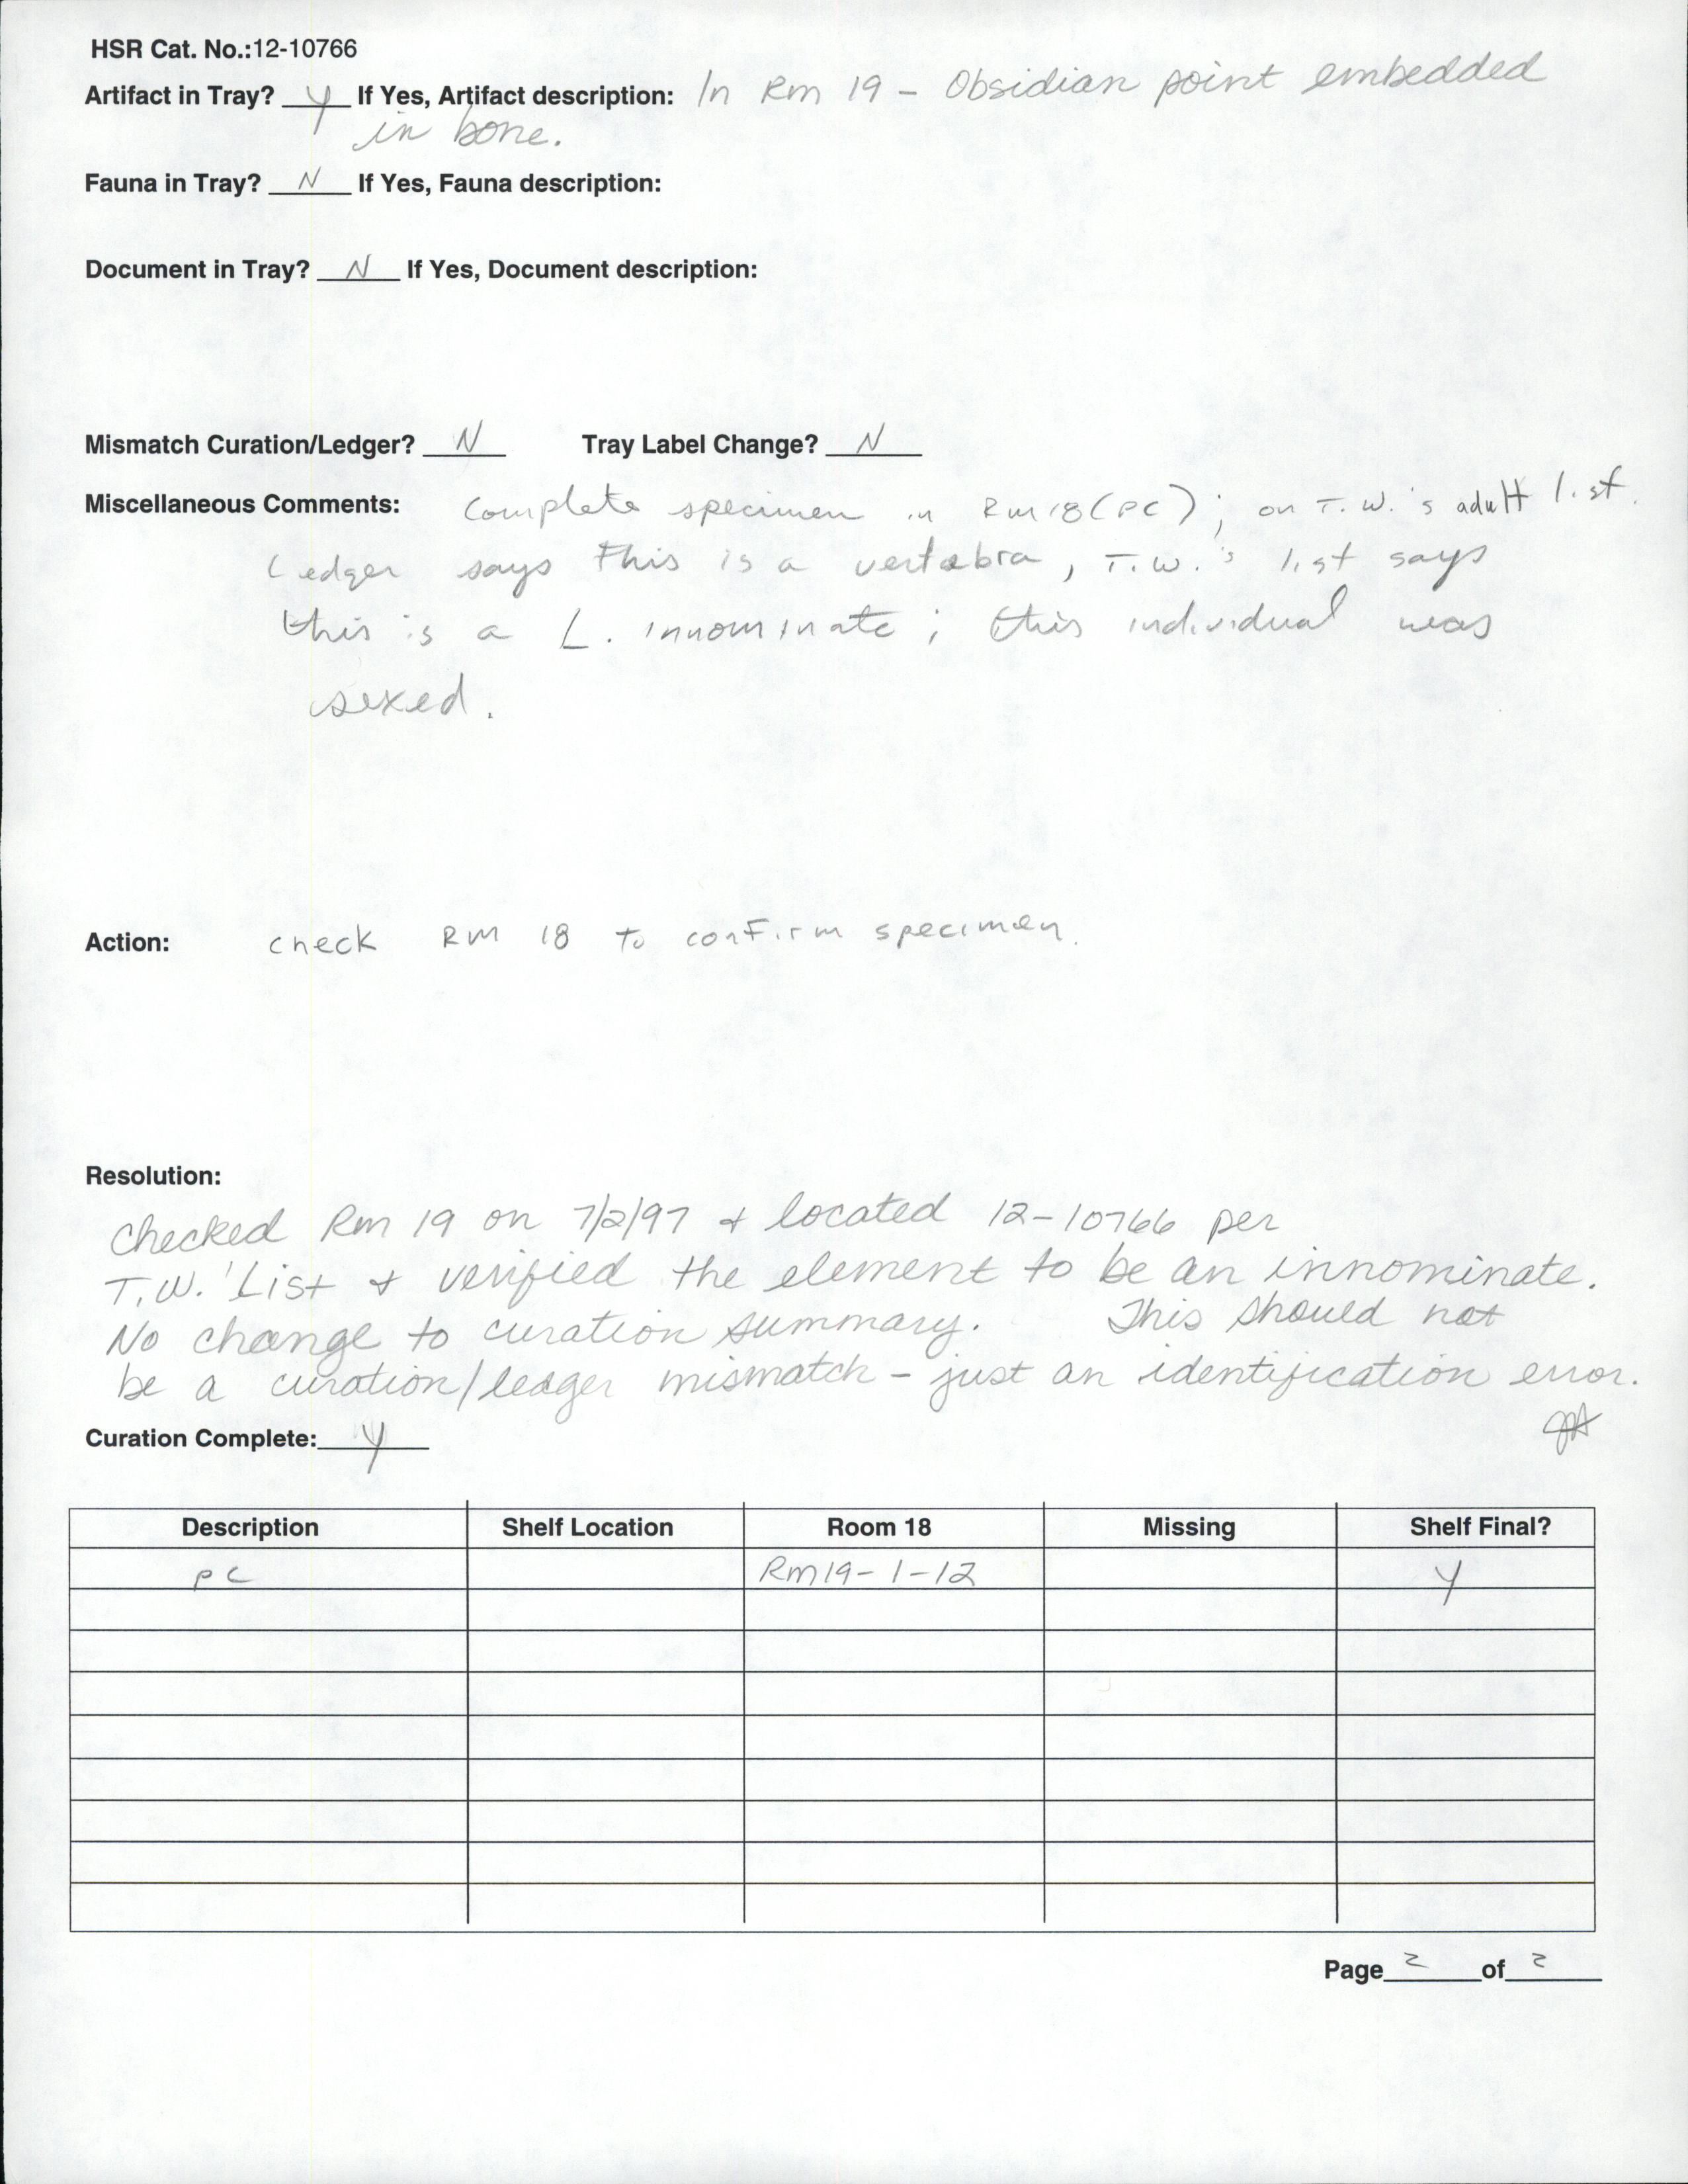 HSR Cat. No.:12-10766
Artifact in Tray? Y If Yes, Artifact description: In Rm 19 - Obsidian point embedded
in bone.
Fauna in Tray? N If Yes, Fauna description:
Document in Tray? N If Yes, Document description:
Mismatch Curation/Ledger? N Tray Label Change? N
Miscellaneous Comments: Complete specimen in Rm 18 (PC); on T.W.'s adult list.
Ledger says this is a vertabra, T.W.'s list says
this is a L. innominate; this individual was
sexed.
Action: check RM 18 to confirm specimen.
Resolution:
Checked Rm 19 on 7/2/97 + located 12-10766 per
T.W.' List + verified the element to be an innominate.
No change to curation summary. This should not
be a curation/ledger mismatch - just an identification error.
Curation Complete: Y
Description Shelf Location Room 18 Missing Shelf Final?
PC Rm19-1-12 Y
Page 2 of 2